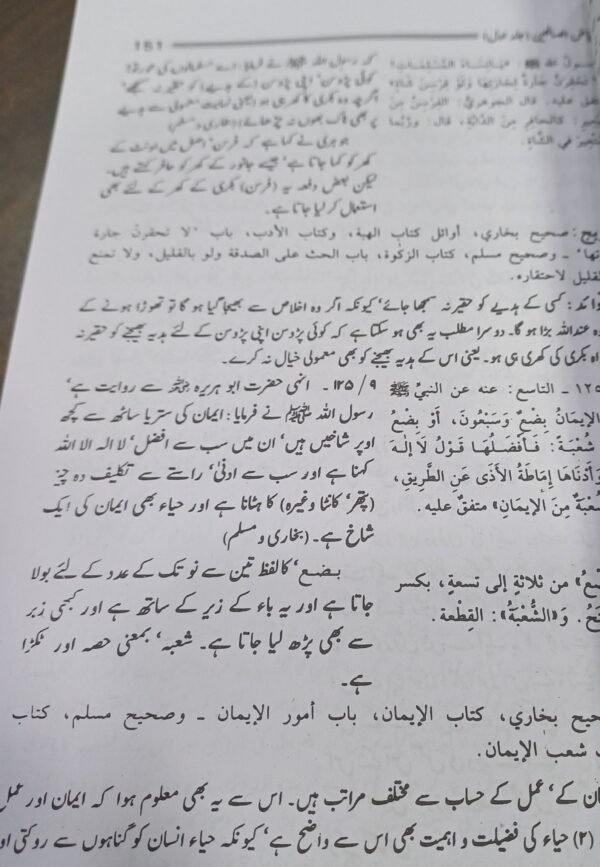 ریاض الصالحین (جلد اول) 151
رسولُ اللهِ ﷺ: «يَا نِسَاءَ المُسْلِمَاتِ
لَا تَحْقِرَنَّ جَارَةٌ لِجَارَتِهَا وَلَوْ فِرْسِنَ شَاةٍ»
متفق عليه. قال الجوهري: الفِرْسِنُ مِنَ
البَعِيرِ: كالحافِرِ مِنَ الدَّابَّةِ، قال: ورُبَّمَا
اسْتُعِيرَ في الشَّاةِ.
کہ رسول اللہ ﷺ نے فرمایا، اے مسلمانوں کی عورتو!
کوئی پڑوسن، اپنی پڑوسن (کے ہدیے) کو حقیر نہ سمجھے،
اگرچہ وہ بکری کا کھر ہی ہو (یعنی نہایت معمولی سے ہدیے
پر بھی ناک بھوں نہ چڑھائے) (بخاری و مسلم)
جوہری نے کہا ہے کہ فرسن، اصل میں اونٹ کے
کھر کو کہا جاتا ہے، جیسے جانور کے کھر کو حافر کہتے ہیں۔
لیکن بعض دفعہ یہ (فرسن) بکری کے کھر کے لئے بھی
استعمال کر لیا جاتا ہے۔
یج: صحيح بخاري، أوائل كتاب الهبة، وكتاب الأدب، باب "لا تحقرن جارة
تها" ـ وصحيح مسلم، كتاب الزكوة، باب الحث على الصدقة ولو بالقليل، ولا تمنع
لقليل لاحتقاره.
وائد: کسی کے ہدیے کو حقیر نہ سمجھا جائے، کیونکہ اگر وہ اخلاص سے بھیجا گیا ہو گا تو تھوڑا ہونے کے
وہ عنداللہ بڑا ہو گا۔ دوسرا مطلب یہ بھی ہو سکتا ہے کہ کوئی پڑوسن اپنی پڑوسن کے لئے ہدیہ بھیجنے کو حقیر نہ
اہ بکری کی کھری ہی ہو۔ یعنی اس کے ہدیہ بھیجنے کو بھی معمولی خیال نہ کرے۔
١٢٥ ـ التاسع: عنه عن النبيِّ ﷺ
الإيمَانُ بِضْعٌ وَسَبْعُونَ، أَوْ بِضْعٌ
شُعْبَةً: فَأَفْضَلُهَا قَوْلُ لَا إِلٰهَ
وَأَدْنَاهَا إِمَاطَةُ الأَذَى عَنِ الطَّرِيقِ،
شُعْبَةٌ مِنَ الإِيمَانِ» متفقٌ عليه.
۹ / ۱۲۵ ۔ انہی حضرت ابو ہریرہ رضی اللہ عنہ سے روایت ہے،
رسول اللہ ﷺ نے فرمایا: ایمان کی ستر یا ساٹھ سے کچھ
اوپر شاخیں ہیں، ان میں سب سے افضل، لا الہ الا اللہ
کہنا ہے اور سب سے ادنیٰ، راستے سے تکلیف دہ چیز
(پتھر، کانٹا وغیرہ) کا ہٹانا ہے اور حیاء بھی ایمان کی ایک
شاخ ہے۔ (بخاری و مسلم)
ضع» من ثلاثةٍ إلى تسعةٍ، بكسر
تح. و«الشُّعْبَةُ»: القِطْعة.
بضع، کا لفظ تین سے نو تک کے عدد کے لئے بولا
جاتا ہے اور یہ باء کے زیر کے ساتھ ہے اور کبھی زبر
سے بھی پڑھ لیا جاتا ہے۔ شعبہ، بمعنی حصہ اور ٹکڑا
ہے۔
حيح بخاري، كتاب الإيمان، باب أمور الإيمان ـ وصحيح مسلم، كتاب
شعب الإيمان.
ان کے، عمل کے حساب سے مختلف مراتب ہیں۔ اس سے یہ بھی معلوم ہوا کہ ایمان اور عمل
(۲) حیاء کی فضیلت و اہمیت بھی اس سے واضح ہے، کیونکہ حیاء انسان کو گناہوں سے روکتی او